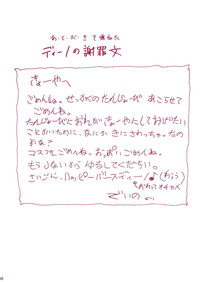 あ・と・が・き で 重ねた
ディーノの謝罪文
きょーやへ
ごめんね。せっかくのたんじょーび おこらせて
ごめんね。
たんじょーびにおれがきょーやにしてあげたい
ことがいたのに、なにか きにさわっちゃったの
かな?
コスプレごめんね。おっぱいごめんね。
もうしないから ゆるしてくだちい。
さいごに、ハッピーバースディー♪(わらう
でぃーの